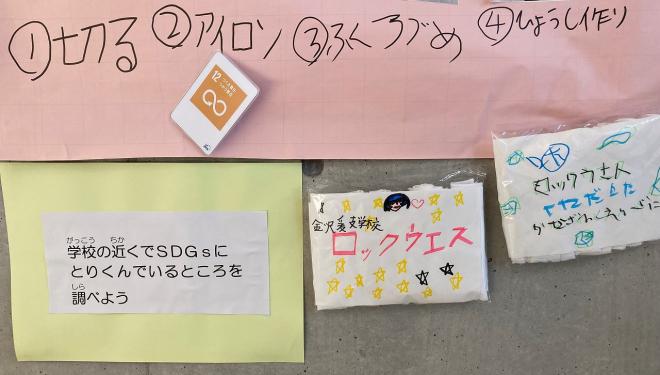 ①切る ②アイロン ③ふくろづめ ④ひょうし作り
12 つくる責任
つかう責任
がっこう ちか
学校の近くでSDGsに
とりくんでいるところを
しら
調べよう
金沢支学校
ロックウエス
ロックウエス